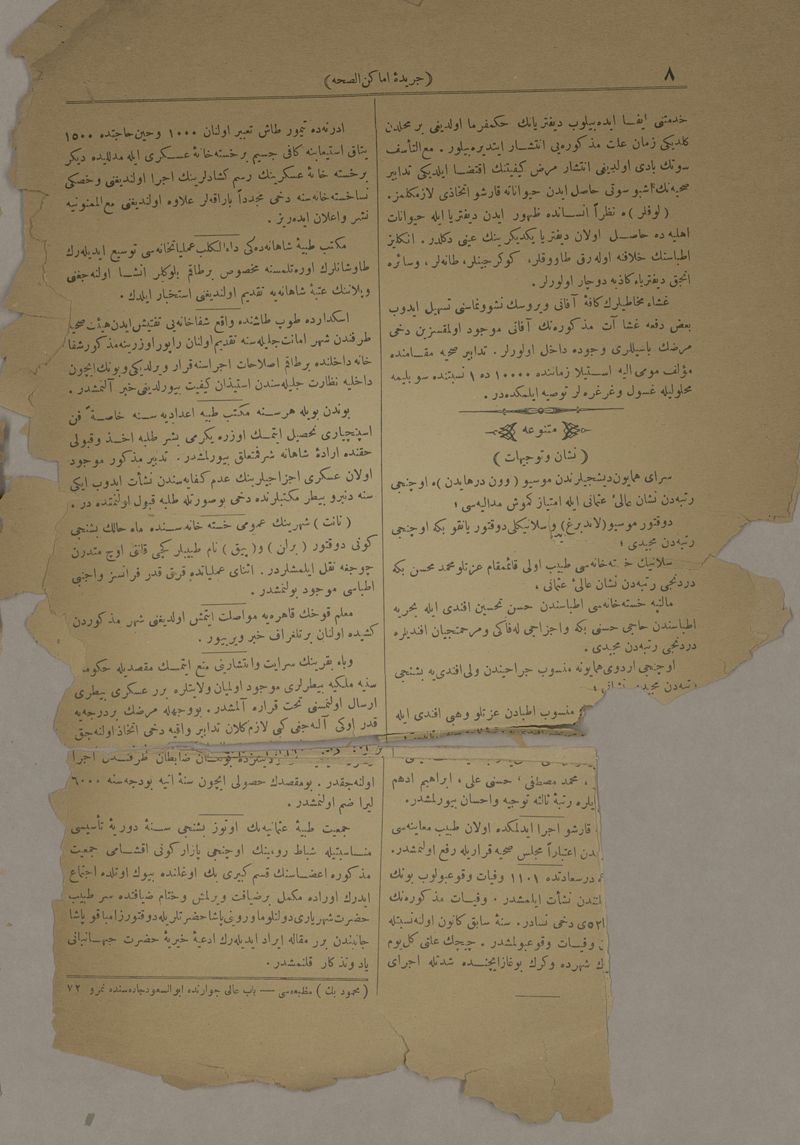 ٨
(جريدۀ اماكن الصحه)
خدمتنى ايفا ايده بيلوب ديفتريانك حكمفرما اولديغى بر محلدن
كلديكى زمان علت مذكوره يى انتشار ايتديره بيلور . مع التأسف
سوتك بادى اولديغى انتشار مرض كيفيتنك اقتضا ايلديكى تدابير
صحيه نك اشبو سوتى حاصل ايدن حيواناته قارشو اتخاذى لازمكلمز.
( لوفلر )ه نظراً انسانده ظهور ايدن ديفتريا ايله حيوانات
اهليه ده حاصل اولان ديفتريا يكديكرينك عينى دكلدر . انكليز
اطباسنك خلافنه اوله رق طاووقلر، كوكرجينلر، طانه لر ، وسائره
انجق ديفترياء كاذبه دوچار اولورلر .
غشاء مخاطيلرك كافۀ آفاتى ويروسك نشوونماسنى تسهيل ايدوب
بعض دفعه غشا آت مذكوره نك آفاتى موجود اولمقسزين دخى
مرضك باسيللرى وجوده داخل اولورلر . تدابير صحيه مقامنده
مؤلف مومى اليه استيلا زماننده ١٠٠٠٠ ده ١ نسبتنده سوبليمه
محلوليله غسول وغرغره لر توصيه ايلمكده در .
متنوعه
( نشان وتوجيهات )
سراى همايون ديشجيلرندن موسيو ( وون درهايدن )ه اوچنجى
رتبه دن نشان عالئ عثمانى ايله امتياز كموش مداليه سى ؛
دوقتور موسيو (لاندبرغ) وسلانيكلى دوقتور يانقو بكه اوچنجى
رتبه دن مجيدى ؛
سلانيك خسته خانه سى طبيب اولى قائممقام عزتلو محمد محسن بكه
دردنجى رتبه دن نشان عالئ عثمانى ،
ماليه خسته خانه سى اطباسندن حسن تحسين افندى ايله بحريه
اطباسندن حاجى حسنى بكه واجزاجى له فاكى ومرحمتجيان افنديلره
دردنجى رتبه دن مجيدى .
اوچنجى اردوى همايونه منسوب جراحيندن ولى افندى يه بشنجى
رتبه دن مجيدى نشانى ؛
منسوب اطبادن عزتلو وهبى افندى ايله
، محمد مصطفى ، حسنى على ، ابراهيم ادهم
ايلره رتبۀ ثالثه توجيه واحسان بيورلمشدر.
قارشو اجرا ايدلمكده اولان طبيب معاينه سى
دن اعتباراً مجلس صحيه قراريله رفع اولنمشدر.
درسعادتده ١١٠١ وفيات وقوعبولوب بونك
لتندن نشأت ايلمشدر . وفيات مذكوره نك
٥٢ى دخى نسادر. سنۀ سابق كانون اوله نسبتله
وفيات وقوعبولمشدر . چيچك علتى كل يوم
ك شهرده وكرك بوغاز ايچنده شدتله اجراى
ادرنه ده تيمور طاش تعبير اولنان ١٠٠٠ وحين حاجتده ١٥٠٠
يتاق استيعابنه كافى جسيم بر خسته خانۀ عسكرى ايله مدلليده ديكر
بر خسته خانۀ عسكرينك رسم كشادلرينك اجرا اولنديغنى وخصكى
نسا خسته خانه سنه دخى مجدداً باراقه لر علاوه اولنديغنى مع الممنونيه
نشر واعلان ايده ريز .
مكتب طبيۀ شاهانه ده كى داء الكلب عملياتخانه سى توسيع ايديله رك
طاوشانلرك اوره تلمسنه مخصوص بر طاقم بلوكلر انشا اولنه جغنى
وپلاننك عتبۀ شاهانه يه تقديم اولنديغنى استخبار ايلدك .
اسكدارده طوپ طاشنده واقع شفاخانه يى تفتيش ايدن هيئت صحيه
طرفندن شهر امانت جليله سنه تقديم اولنان راپور اوزرينه مذكور شفا
خانه داخلنده بر طاقم اصلاحات اجراسنه قرار ويرلديكى وبونك ايچون
داخليه نظارت جليله سندن استيذان كيفيت بيورلديغنى خبر آلنمشدر .
بوندن بويله هر سنه مكتب طبيه اعداديه سنه خاصةً فن
اسپنچيارى تحصيل ايتمك اوزره يكرمى بشر طلبه اخذ وقبولى
حقنده ارادۀ شاهانه شرفمتعلق بيورلمشدر . تدبير مذكور موجود
اولان عسكرى اجزاجيلرينك عدم كفايه سندن نشأت ايدوب ايكى
سنه دنبرو بيطر مكتبلرنده دخى بوصورتله طلبه قبول اولنمقده در .
( نانت ) شهرينك عمومى خسته خانه سنده ماه حالك بشنجى
كونى دوقتور ( برلن ) و( پيق ) نام طبيبلر كچى قاننى اوچ متدرن
چوجغه نقل ايلمشلردر . اثناى عملياتده قرق قدر فرانسز واجنبى
اطباسى موجود بولنمشدر .
معلم قوخك قاهره يه مواصلت ايتمش اولديغى شهر مذكوردن
كشيده اولنان بر تلغراف خبر ويرييور .
وباء بقرينك سرايت وانتشارينى منع ايتمك مقصديله حكومت
سنيه ملكيه بيطرلرى موجود اولميان ولايتلره برر عسكرى بيطرى
ارسال اولنمسنى تحت قراره آلمشدر . بووجهله مرضك بر درجه يه
قدر اوكى آلنه جغى كبى لازمكلان تدابير واقيه دخى اتخاذ اولنه جق
ضابطان طرفندن اجرا
اولنه جقدر . بو مقصدك حصولى ايچون سنۀ آتيه بودجه سنه ٦٠٠٠
ليرا ضم اولنمشدر .
جمعيت طبيۀ عثمانيه نك اوتوز بشنجى سنۀ دوريۀ تأسيسى
مناسبتيله شباط روينك اوچنجى بازار كونى اقشامى جمعيت
مذكوره اعضاسنك قسم كبيرى بك اوغلنده بيوك اوتلده اجتماع
ايدرك اوراده مكمل بر ضيافت ويرلمش وختام ضيافتده سر طبيب
حضرت شهريارى دولتلو ماوروينى پاشا حضرتلريله دوقتور زامباقو پاشا
جانبندن برر مقاله ايراد ايديله رك ادعيۀ خيريۀ حضرت جهانبانى
ياد وتذكار قلنمشدر .
( محمود بك ) مطبعه سى — باب عالى جوارنده ابوالسعود جاده سنده نمرو ٧٢